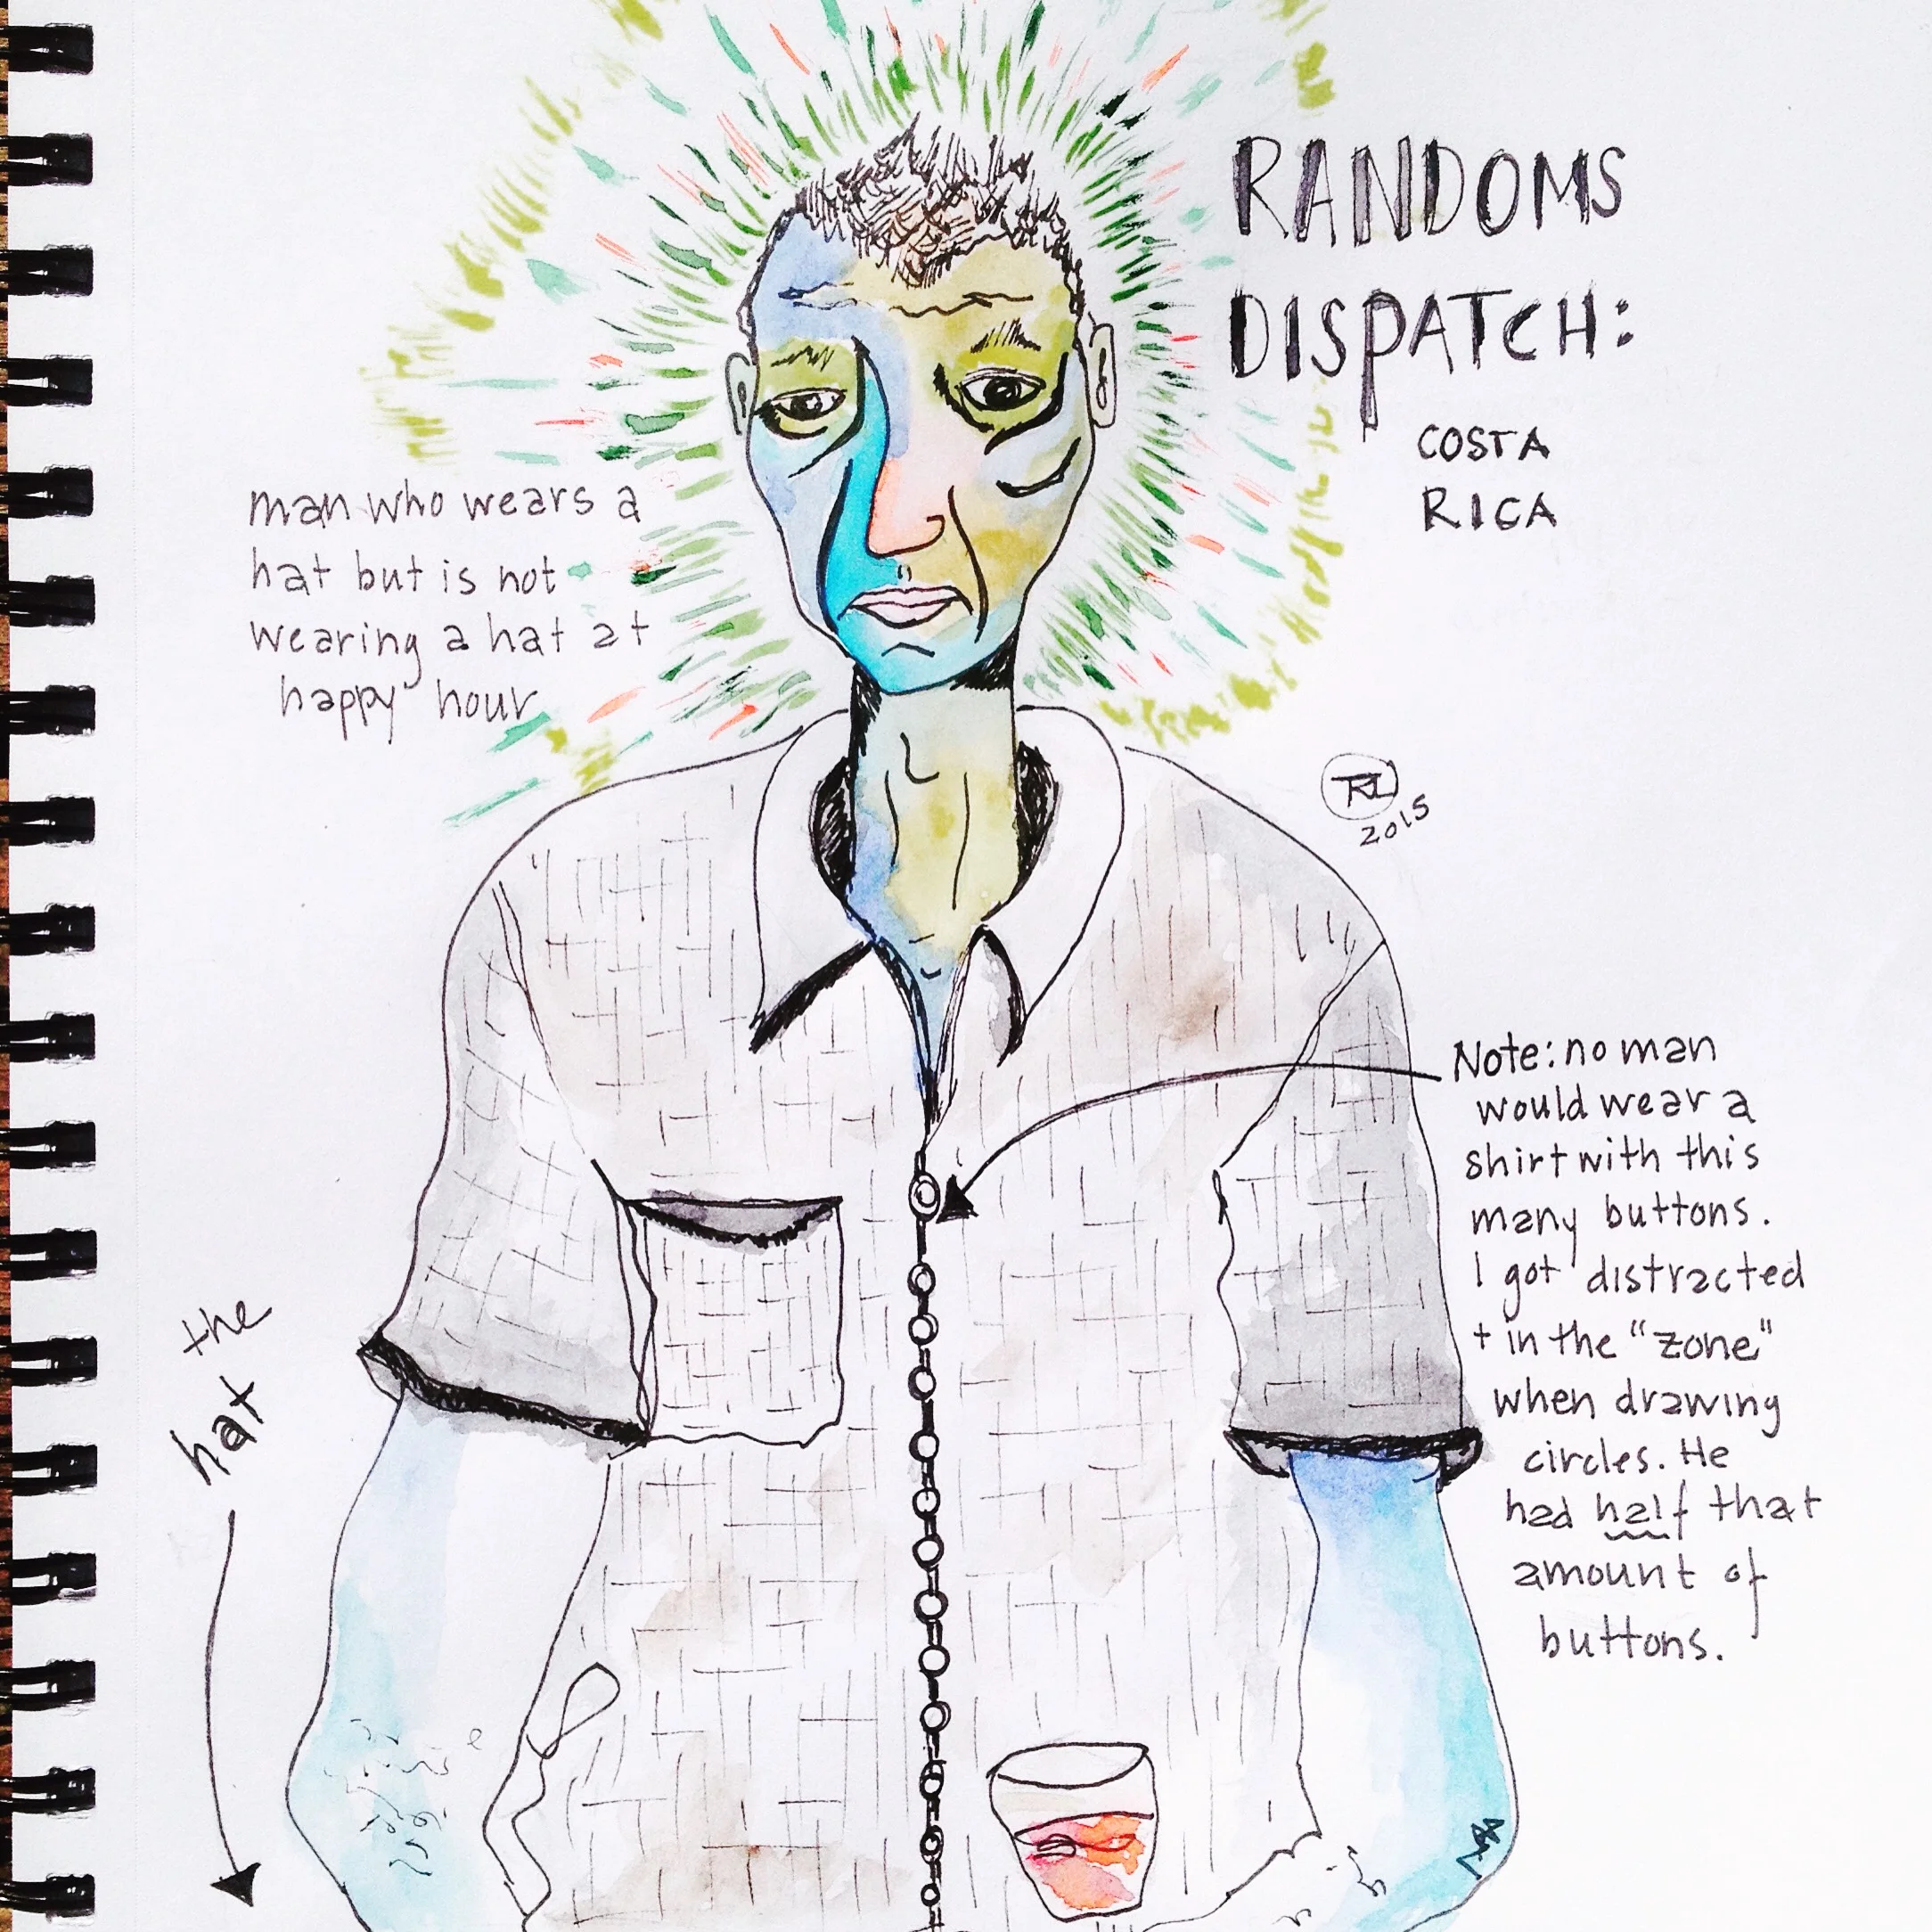 RANDOMS
DISPATCH:
COSTA
RICA
man who wears a
hat but is not
wearing a hat at
happy hour
2015
Note: no man
would wear a
shirt with this
many buttons.
I got distracted
+ in the "zone"
when drawing
circles. He
had half that
amount of
buttons.
the
hat